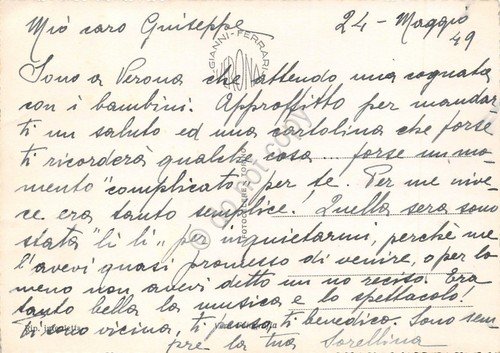 Mio caro Guiseppe
24 - Maggio
49
Sono a Verona che attendo una cognata
con i bambini. Approffitto per mandar
ti un saluto ed una cartolina che forse
ti ricorderà qualche cosa... forse un mo
mento "complicato" per te. Per me inve
ce era tanto semplice. Quella sera sono
stata "lì lì" per inquietarmi, perchè me
l'avevi quasi promesso di venire, o per lo
meno non avevi detto un no reciso. Era
tanto bella la musica e lo spettacolo.
Ti sono vicina, ti penso, ti benedico. Sono sem
pre la tua Sorellina
GIANNI-FERRARI